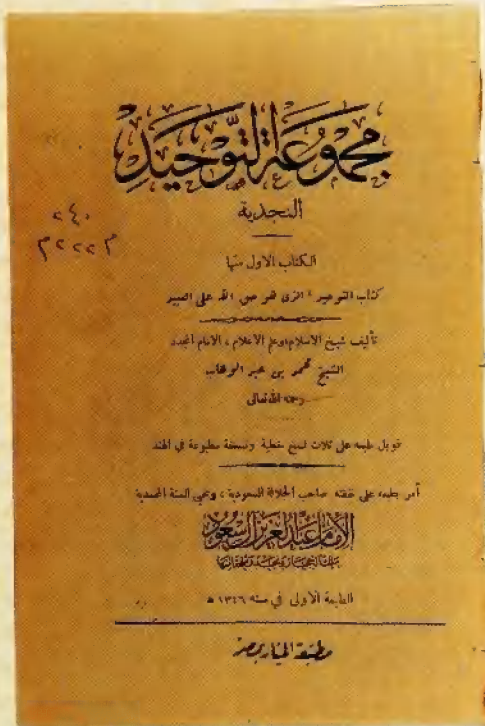 مجموعة التوحيد
النجدية
٢٤٠
م ٢٢٢ م
الكتاب الاول منها
كتاب التوحيد « الذى هو حق الله على العبيد
تأليف شيخ الاسلام وعلم الاعلام ، الامام المجدد
الشيخ محمد بن عبد الوهاب
رحمه الله تعالى
قوبل طبعه على ثلاث نسخ خطية ونسخة مطبوعة في الهند
أمر بطبعه على نفقته صاحب الجلالة السعودية ، ومحي السنة المحمدية
الإمام عبد العزيز آل سعود
ملك الحجاز ونجد وملحقاتها
الطبعة الاولى في سنة ١٣٤٦ ه
مطبعة المنار بمصر